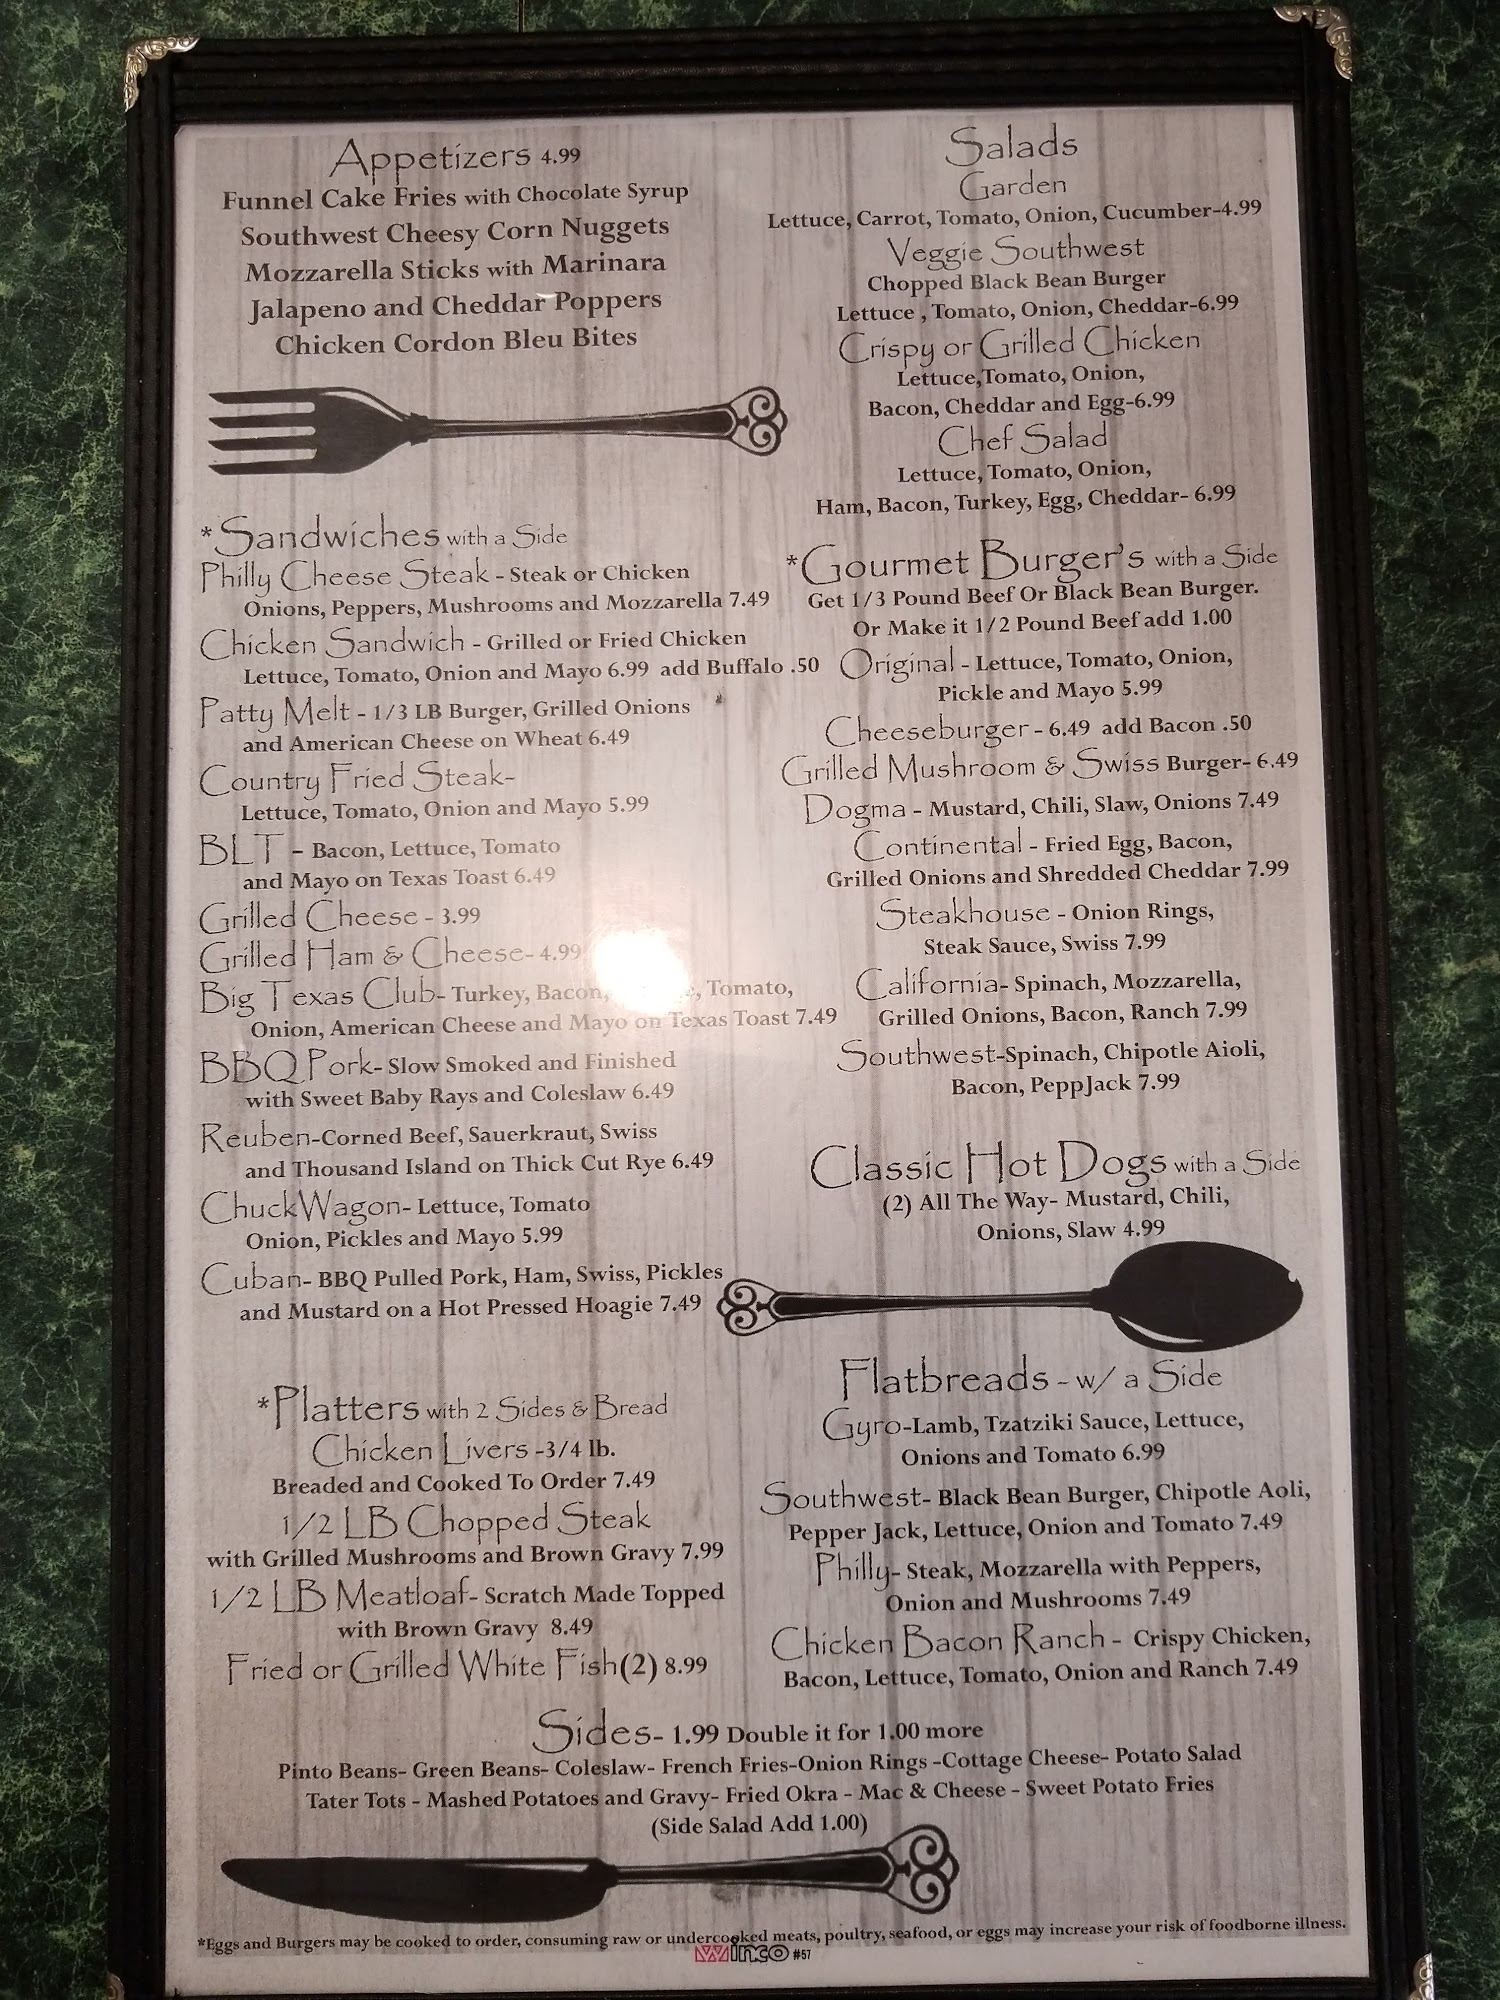 Appetizers 4.99
Funnel Cake Fries with Chocolate Syrup
Southwest Cheesy Corn Nuggets
Mozzarella Sticks with Marinara
Jalapeno and Cheddar Poppers
Chicken Cordon Bleu Bites
*Sandwiches with a Side
Philly Cheese Steak - Steak or Chicken
Onions, Peppers, Mushrooms and Mozzarella 7.49
Chicken Sandwich - Grilled or Fried Chicken
Lettuce, Tomato, Onion and Mayo 6.99 add Buffalo .50
Patty Melt - 1/3 LB Burger, Grilled Onions
and American Cheese on Wheat 6.49
Country Fried Steak-
Lettuce, Tomato, Onion and Mayo 5.99
BLT - Bacon, Lettuce, Tomato
and Mayo on Texas Toast 6.49
Grilled Cheese - 3.99
Grilled Ham & Cheese- 4.99
Big Texas Club- Turkey, Bacon, Tomato,
Onion, American Cheese and Mayo on Texas Toast 7.49
BBQ Pork- Slow Smoked and Finished
with Sweet Baby Rays and Coleslaw 6.49
Reuben-Corned Beef, Sauerkraut, Swiss
and Thousand Island on Thick Cut Rye 6.49
ChuckWagon- Lettuce, Tomato
Onion, Pickles and Mayo 5.99
Cuban- BBQ Pulled Pork, Ham, Swiss, Pickles
and Mustard on a Hot Pressed Hoagie 7.49
*Platters with 2 Sides & Bread
Chicken Livers -3/4 lb.
Breaded and Cooked To Order 7.49
1/2 LB Chopped Steak
with Grilled Mushrooms and Brown Gravy 7.99
1/2 LB Meatloaf- Scratch Made Topped
with Brown Gravy 8.49
Fried or Grilled White Fish(2) 8.99
Salads
Garden
Lettuce, Carrot, Tomato, Onion, Cucumber-4.99
Veggie Southwest
Chopped Black Bean Burger
Lettuce , Tomato, Onion, Cheddar-6.99
Crispy or Grilled Chicken
Lettuce,Tomato, Onion,
Bacon, Cheddar and Egg-6.99
Chef Salad
Lettuce, Tomato, Onion,
Ham, Bacon, Turkey, Egg, Cheddar- 6.99
*Gourmet Burger's with a Side
Get 1/3 Pound Beef Or Black Bean Burger.
Or Make it 1/2 Pound Beef add 1.00
Original - Lettuce, Tomato, Onion,
Pickle and Mayo 5.99
Cheeseburger - 6.49 add Bacon .50
Grilled Mushroom & Swiss Burger- 6.49
Dogma - Mustard, Chili, Slaw, Onions 7.49
Continental - Fried Egg, Bacon,
Grilled Onions and Shredded Cheddar 7.99
Steakhouse - Onion Rings,
Steak Sauce, Swiss 7.99
California- Spinach, Mozzarella,
Grilled Onions, Bacon, Ranch 7.99
Southwest-Spinach, Chipotle Aioli,
Bacon, PeppJack 7.99
Classic Hot Dogs with a Side
(2) All The Way- Mustard, Chili,
Onions, Slaw 4.99
Flatbreads - w/ a Side
Gyro-Lamb, Tzatziki Sauce, Lettuce,
Onions and Tomato 6.99
Southwest- Black Bean Burger, Chipotle Aoli,
Pepper Jack, Lettuce, Onion and Tomato 7.49
Philly- Steak, Mozzarella with Peppers,
Onion and Mushrooms 7.49
Chicken Bacon Ranch - Crispy Chicken,
Bacon, Lettuce, Tomato, Onion and Ranch 7.49
Sides- 1.99 Double it for 1.00 more
Pinto Beans- Green Beans- Coleslaw- French Fries-Onion Rings -Cottage Cheese- Potato Salad
Tater Tots - Mashed Potatoes and Gravy- Fried Okra - Mac & Cheese - Sweet Potato Fries
(Side Salad Add 1.00)
*Eggs and Burgers may be cooked to order, consuming raw or undercooked meats, poultry, seafood, or eggs may increase your risk of foodborne illness.
winco #57